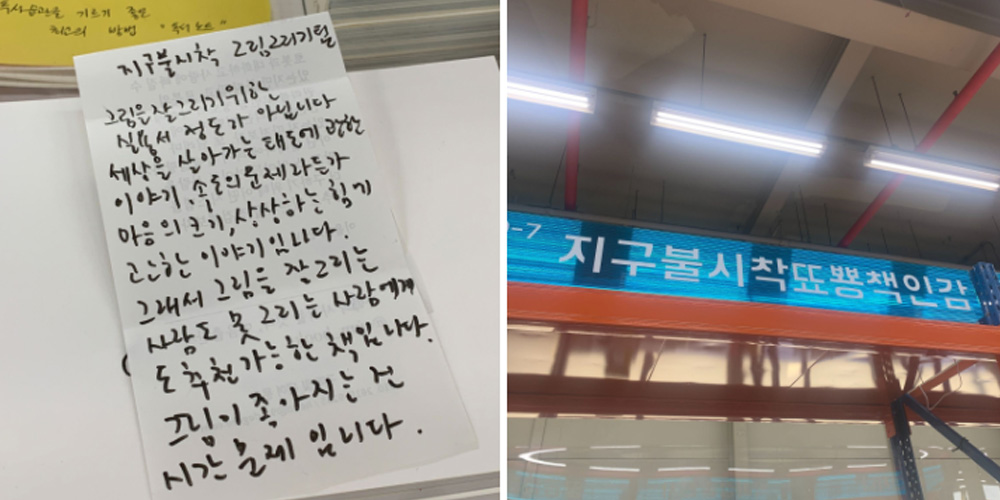 기르기 좋은
최고의 방법
지구불시착 그림그리기털
그림을잘그리기위한
실용서 정도가 아닙니다
세상을 살아가는 태도에 관한
이야기. 속도의문제라든가
마음의크기, 상상하는 힘에
관한 이야기입니다.
그래서 그림을 잘그리는
사람도 못그리는 사람에게
도추천가능한책입니다.
그림이 좋아지는건
시간 문제 입니다.
-7 지구불시착뾰뿅책인감